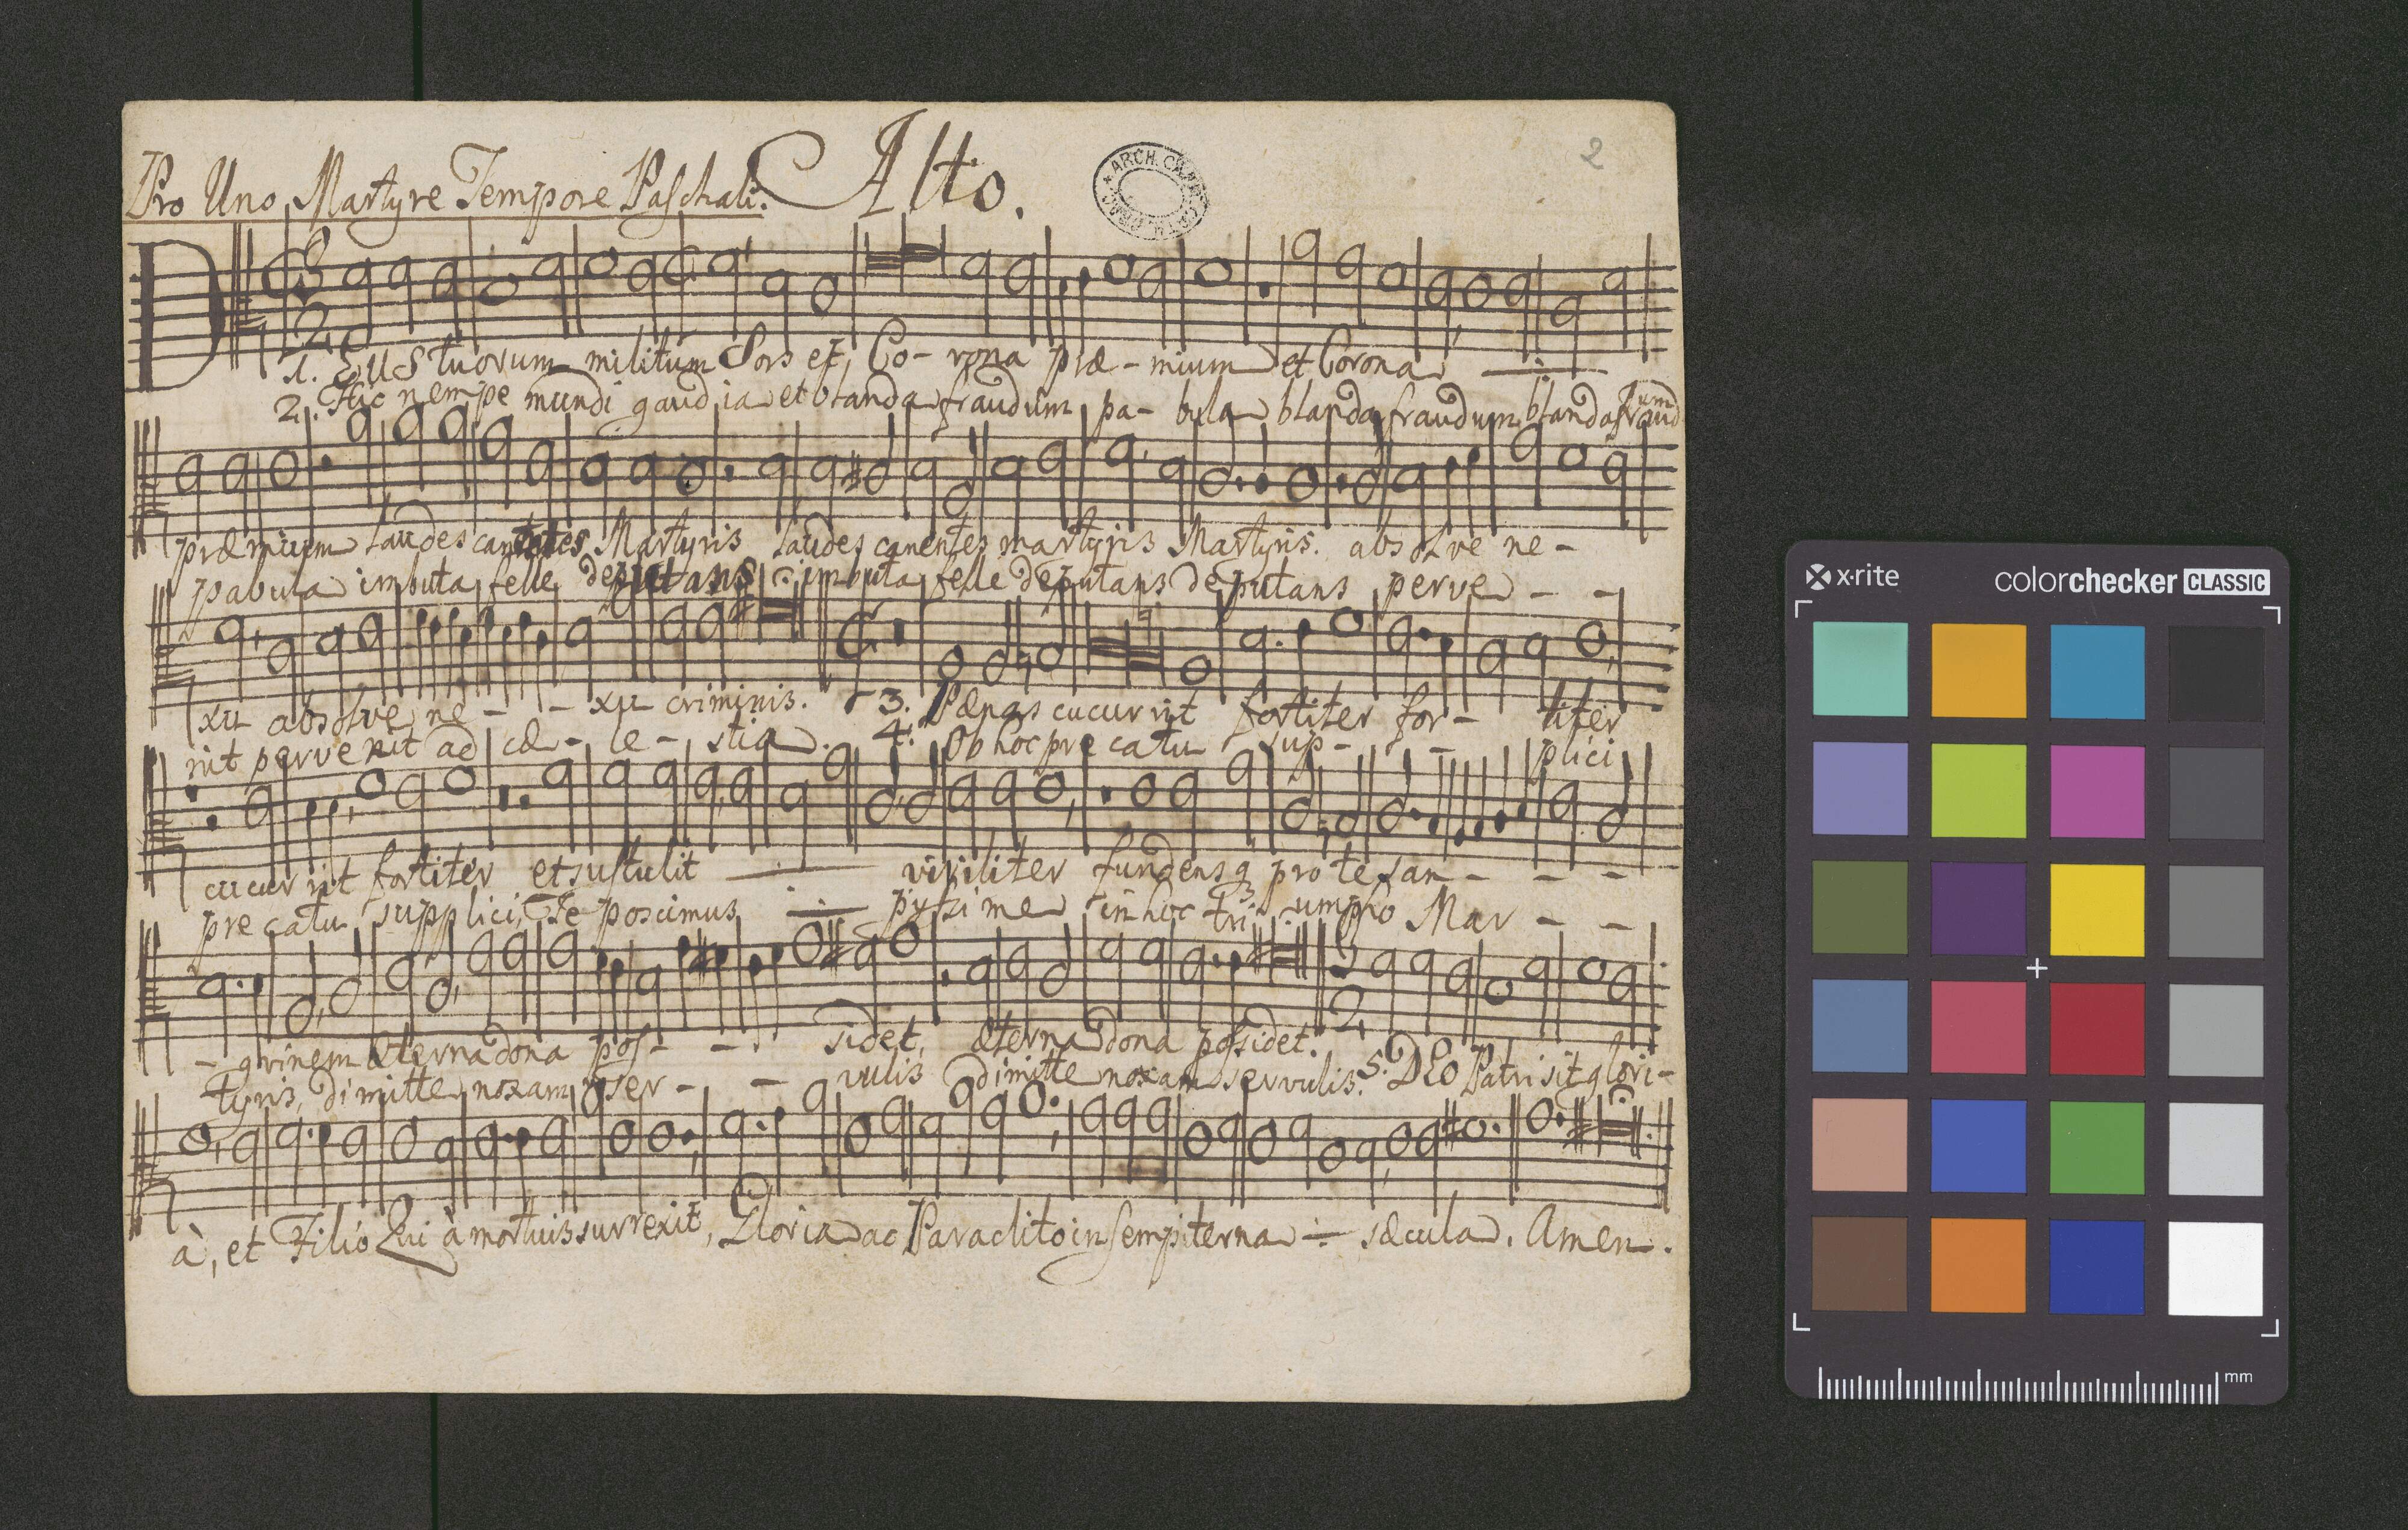 Pro Uno Martyre Tempore Paschali. Alto.
2
ARCH. CR
3
2
1. DEUS tuorum militum Sors et Co- rona præ- mium et Corona
2. Hic nempe mundi gaudia et blanda fraudum pa- bula blanda fraudum blanda fraudum
præmium laudes canentes Martyris laudes canentes martyris Martyris. absolve ne-
pabula imbuta felle deputans imbuta felle deputans deputans perve - -
xu absolve ne - - xu criminis. 3. Pænas cucurrit fortiter for- titer
nit pervenit ad cæ- le- stia. 4. Ob hoc precatu sup- - plici
cucurrit fortiter et sustulit viriliter fundensq pro te san- - - -
precatu supplici, Te poscimus pyssime in hoc tri- umpho Mar - -
- gvinem Æterna dona pos- - sidet, æterna dona possidet. 2
tyris, dimitte noxam ser- - vulis dimitte noxam servulis. 5. DEO Patri sit glori-
à, et Filio Qui à mortuis surrexit, Gloria ac Paraclito in sempiterna sæcula. Amen.
x·rite colorchecker CLASSIC
mm